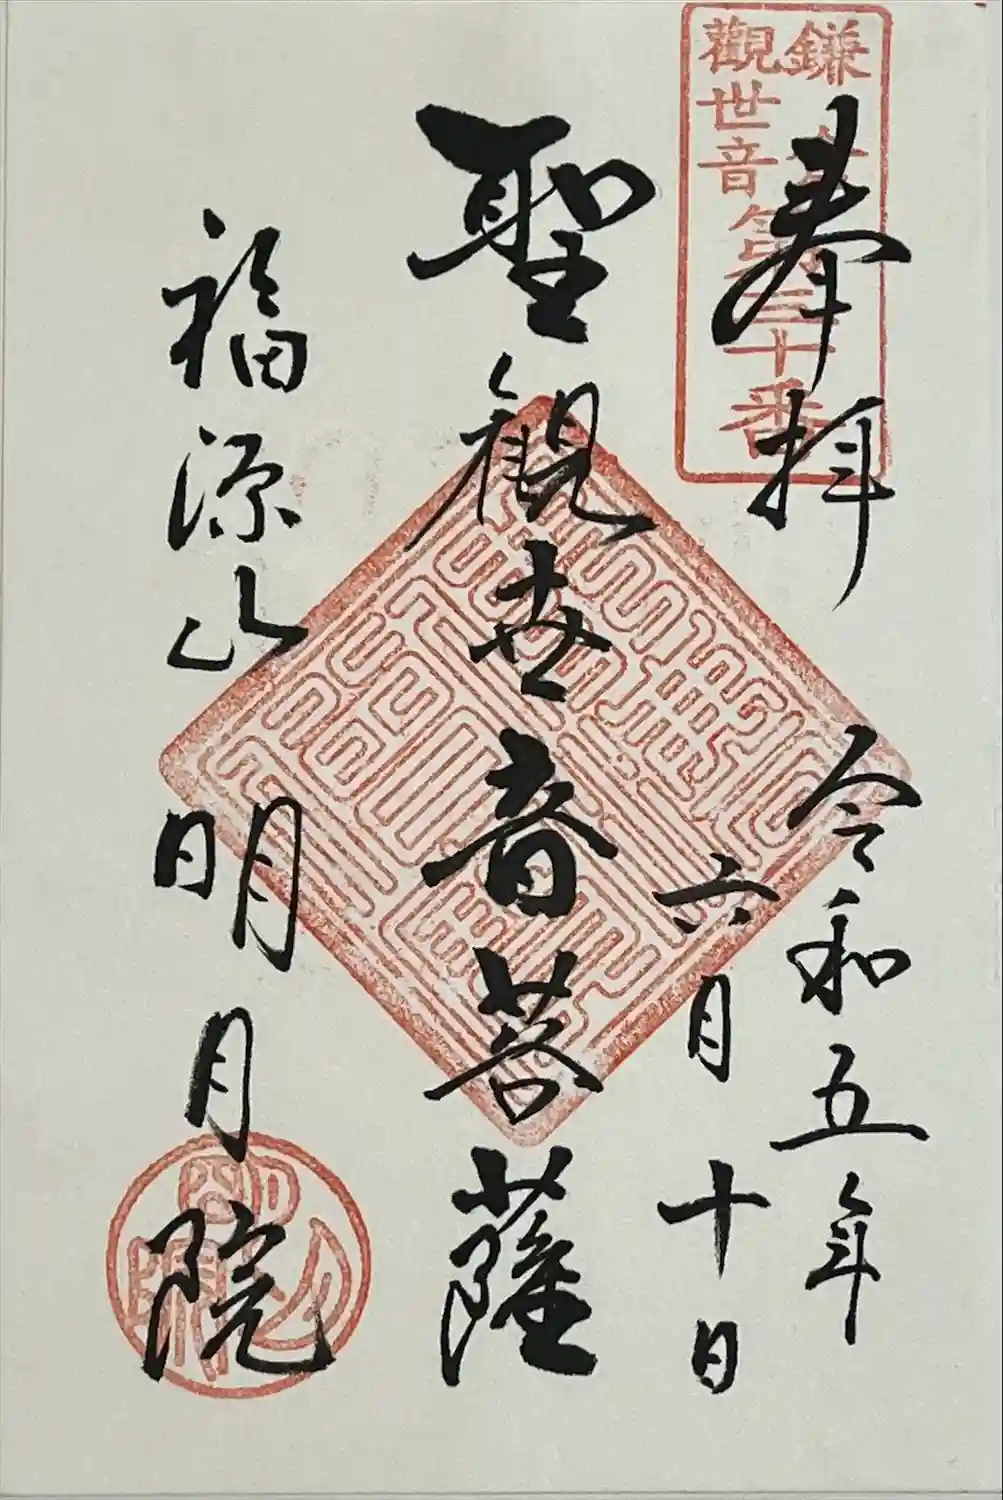 奉拝
鎌倉
觀世音第三十番
令和五年
六月十日
聖觀世音菩薩
福源山明月院